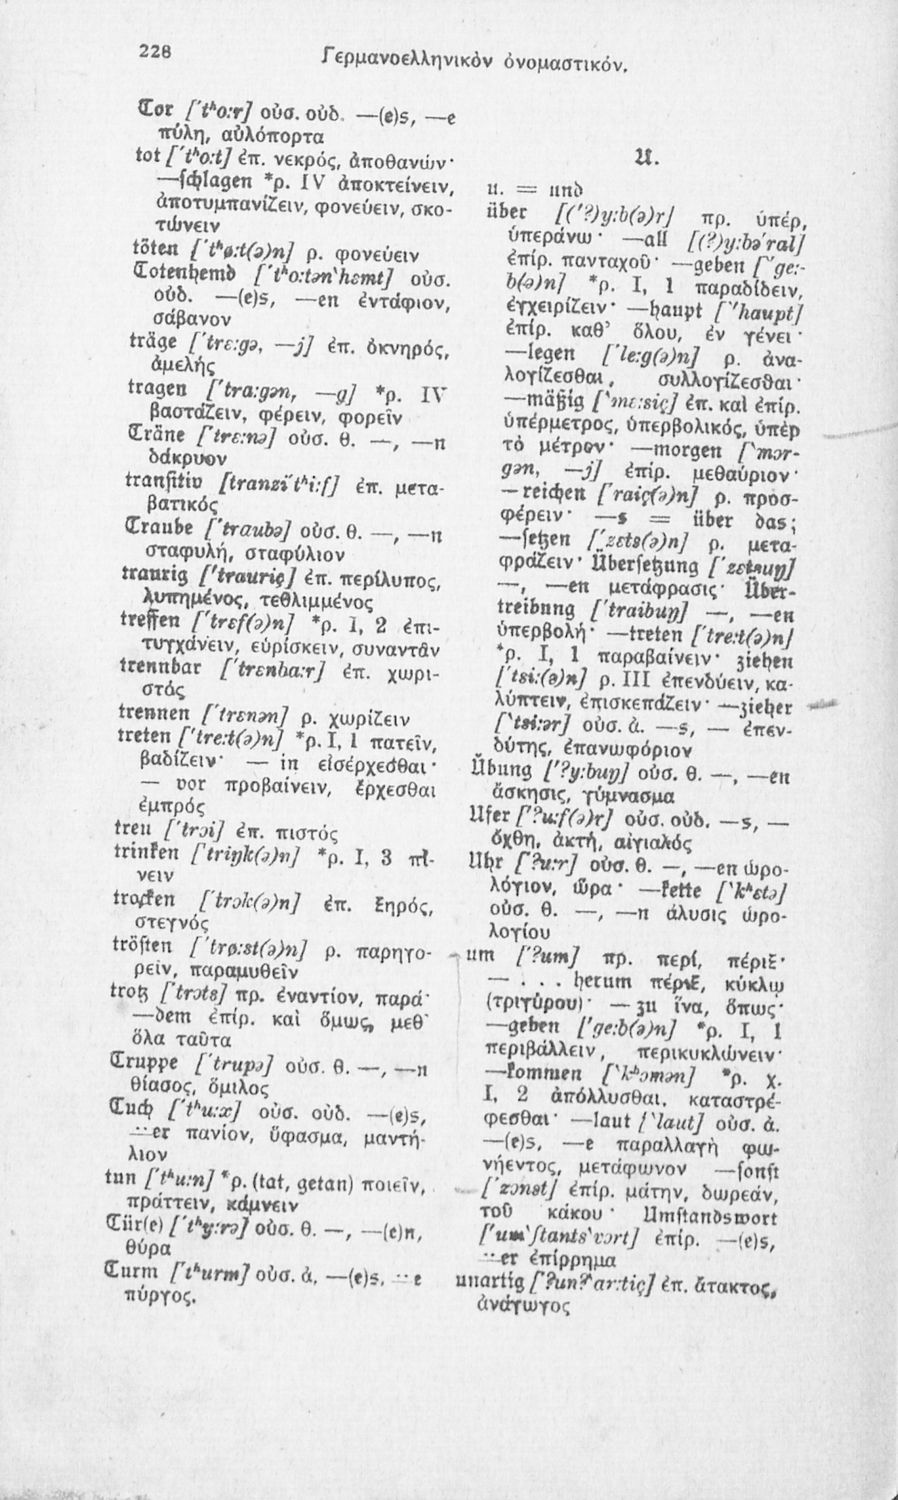 228
Γερμανοελληνικὸν ὀνομαστικόν.
Tor ['tʰo:r] οὐσ. οὐδ. —(e)s, —e
πύλη, αὐλόπορτα
tot ['tʰo:t] ἐπ. νεκρός, ἀποθανών·
—schlagen *ρ. IV ἀποκτείνειν,
ἀποτυμπανίζειν, φονεύειν, σκο-
τώνειν
töten ['tʰø:t(ə)n] ρ. φονεύειν
Totenhemd ['tʰo:tən'hɛmt] οὐσ.
οὐδ. —(e)s, —en ἐντάφιον,
σάβανον
träge ['trɛ:gə, —j] ἐπ. ὀκνηρός,
ἀμελής
tragen ['tra:gən, —g] *ρ. IV
βαστάζειν, φέρειν, φορεῖν
Träne ['trɛ:nə] οὐσ. θ. —, —n
δάκρυον
transitiv [tranzi'tʰi:f] ἐπ. μετα-
βατικός
Traube ['traubə] οὐσ. θ. —, —n
σταφυλή, σταφύλιον
traurig ['trauriç] ἐπ. περίλυπος,
λυπημένος, τεθλιμμένος
treffen ['trɛf(ə)n] *ρ. I, 2 ἐπι-
τυγχάνειν, εὑρίσκειν, συναντᾶν
trennbar ['trɛnba:r] ἐπ. χωρι-
στός
trennen ['trɛnən] ρ. χωρίζειν
treten ['tre:t(ə)n] *ρ. I, 1 πατεῖν,
βαδίζειν· — in εἰσέρχεσθαι·
— vor προβαίνειν, ἔρχεσθαι
ἐμπρός
treu ['trɔi] ἐπ. πιστός
trinken ['triŋk(ə)n] *ρ. I, 3 πί-
νειν
trocken ['trɔk(ə)n] ἐπ. ξηρός,
στεγνός
trösten ['trø:st(ə)n] ρ. παρηγο-
ρεῖν, παραμυθεῖν
trotz ['trɔts] πρ. ἐναντίον, παρά·
—dem ἐπίρ. καὶ ὅμως, μεθ'
ὅλα ταῦτα
Truppe ['trupə] οὐσ. θ. —, —n
θίασος, ὅμιλος
Tuch ['tʰu:x] οὐσ. οὐδ. —(e)s,
¨er πανίον, ὕφασμα, μαντή-
λιον
tun ['tʰu:n] *ρ. (tat, getan) ποιεῖν,
πράττειν, κάμνειν
Tür(e) ['tʰy:rə] οὐσ. θ. —, —(e)n,
θύρα
Turm ['tʰurm] οὐσ. ἀ. —(e)s, ¨e
πύργος.
U.
u. = und
über [('ʔ)y:b(ə)r] πρ. ὑπέρ,
ὑπεράνω· —all [(ʔ)y:bə'ral]
ἐπίρ. πανταχοῦ· —geben ['ge:-
b(ə)n] *ρ. I, 1 παραδίδειν,
ἐγχειρίζειν· —haupt ['haupt]
ἐπίρ. καθ' ὅλου, ἐν γένει·
—legen ['le:g(ə)n] ρ. ἀνα-
λογίζεσθαι, συλλογίζεσθαι·
—mäßig ['mɛ:siç] ἐπ. καὶ ἐπίρ.
ὑπέρμετρος, ὑπερβολικός, ὑπὲρ
τὸ μέτρον· —morgen ['mɔr-
gən, —j] ἐπίρ. μεθαύριον·
—reichen ['raiç(ə)n] ρ. προσ-
φέρειν· —s = über das;
—setzen ['zɛts(ə)n] ρ. μετα-
φράζειν· Übersetzung ['zɛtsuŋ]
—, —en μετάφρασις· Über-
treibung ['traibuŋ] —, —en
ὑπερβολή· —treten ['tre:t(ə)n]
*ρ. I, 1 παραβαίνειν· ziehen
['tsi:(ə)n] ρ. III ἐπενδύειν, κα-
λύπτειν, ἐπισκεπάζειν· —zieher
['tsi:ər] οὐσ. ἀ. —s, — ἐπεν-
δύτης, ἐπανωφόριον
Übung ['ʔy:buŋ] οὐσ. θ. —, —en
ἄσκησις, γύμνασμα
Ufer ['ʔu:f(ə)r] οὐσ. οὐδ. —s, —
ὄχθη, ἀκτή, αἰγιαλός
Uhr ['ʔu:r] οὐσ. θ. —, —en ὡρο-
λόγιον, ὥρα· —kette ['kʰɛtə]
οὐσ. θ. —, —n ἅλυσις ὡρο-
λογίου
um ['ʔum] πρ. περί, πέριξ·
— . . . herum πέριξ, κύκλῳ
(τριγύρου)· — zu ἵνα, ὅπως·
—geben ['ge:b(ə)n] *ρ. I, 1
περιβάλλειν, περικυκλώνειν·
—kommen ['kʰɔmən] *ρ. χ.
I, 2 ἀπόλλυσθαι, καταστρέ-
φεσθαι· —laut ['laut] οὐσ. ἀ.
—(e)s, —e παραλλαγὴ φω-
νήεντος, μετάφωνον —sonst
['zɔnst] ἐπίρ. μάτην, δωρεάν,
τοῦ κάκου· Umstandswort
['um'ʃtants'vɔrt] ἐπίρ. —(e)s,
¨er ἐπίρρημα
unartig ['ʔunʔar:tiç] ἐπ. ἄτακτος,
ἀνάγωγος